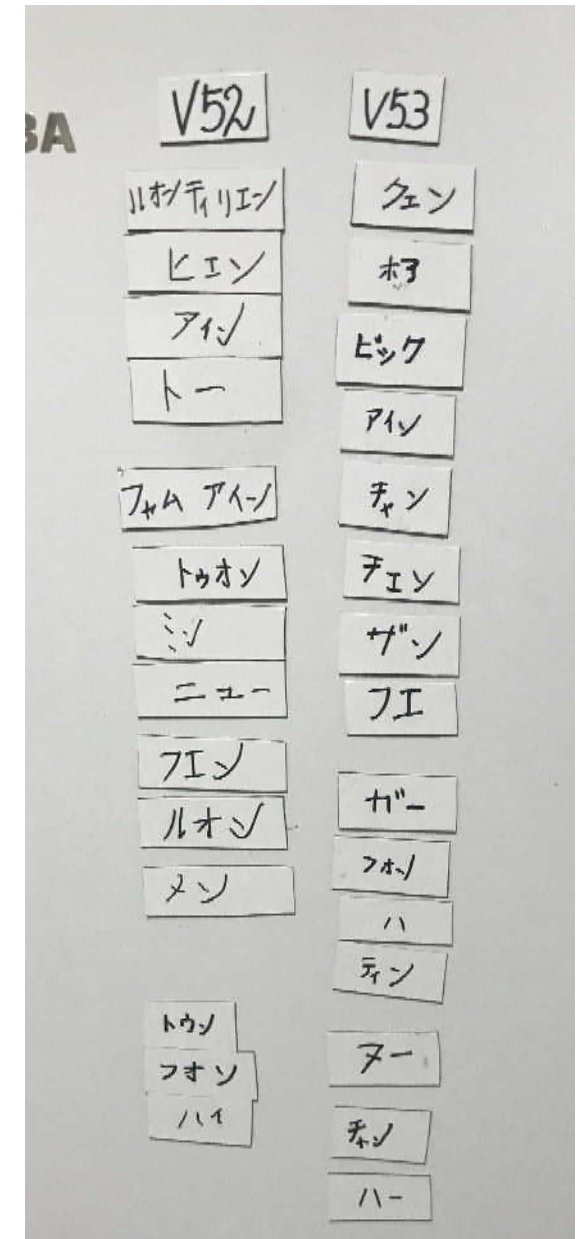 BA
V52
ルオンティリエン
ヒエン
アイン
トー
ファム アイーン
トゥオン
ミン
ニュー
フエン
ルオン
メン
トウン
フオン
ハイ
V53
クェン
ホア
ビック
アイン
チャン
チェン
ザン
フエ
ガー
フォン
ハ
ティン
ヌー
チャン
ハー